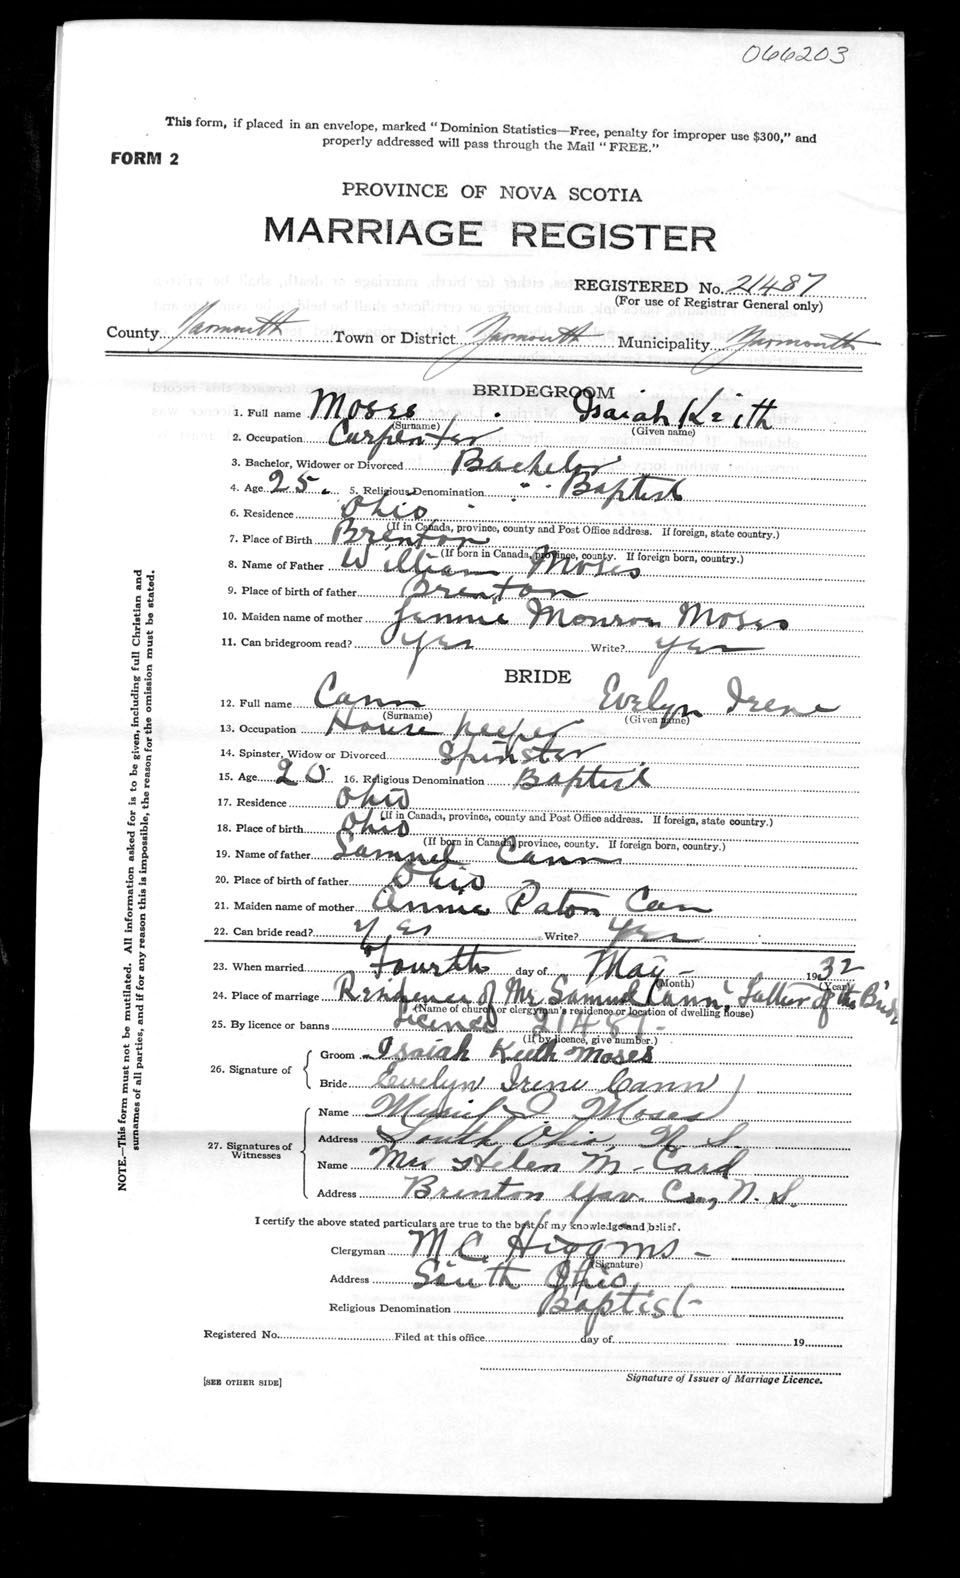 066203
This form, if placed in an envelope, marked "Dominion Statistics—Free, penalty for improper use $300," and
properly addressed will pass through the Mail "FREE."
FORM 2
PROVINCE OF NOVA SCOTIA
MARRIAGE REGISTER
REGISTERED No. 21487
(For use of Registrar General only)
County Yarmouth Town or District Yarmouth Municipality Yarmouth
BRIDEGROOM
1. Full name Moses Isaiah Keith
(Surname) (Given name)
2. Occupation Carpenter
3. Bachelor, Widower or Divorced Bachelor
4. Age 25. 5. Religious Denomination Baptist
6. Residence Ohio
(If in Canada, province, county and Post Office address. If foreign, state country.)
7. Place of Birth Brenton
(If born in Canada, province, county. If foreign born, country.)
8. Name of Father William Moses
9. Place of birth of father Brenton
10. Maiden name of mother Jennie Monroe Moses
11. Can bridegroom read? Yes Write? Yes
BRIDE
12. Full name Cann Evelyn Irene
(Surname) (Given name)
13. Occupation House keeper
14. Spinster, Widow or Divorced Spinster
15. Age 20 16. Religious Denomination Baptist
17. Residence Ohio
(If in Canada, province, county and Post Office address. If foreign, state country.)
18. Place of birth Ohio
(If born in Canada, province, county. If foreign born, country.)
19. Name of father Samuel Cann
20. Place of birth of father Ohio
21. Maiden name of mother Annie Paton Can
22. Can bride read? Yes Write? Yes
23. When married Fourth day of May - 1932
(Month) (Year)
24. Place of marriage Residence of Mr Samuel Cann, Father of the Bride
(Name of church or clergyman's residence or location of dwelling house)
25. By licence or banns Licence 21487-
(If by licence, give number.)
26. Signature of
Groom Isaiah Keith Moses
Bride Evelyn Irene Cann
27. Signatures of Witnesses
Name I Moses
Address South Ohio, N. S.
Name Mrs Helen M. Card
Address Brenton Yar. Co., N. S.
I certify the above stated particulars are true to the best of my knowledge and belief.
Clergyman M C Higgins -
(Signature)
Address South Ohio
Religious Denomination Baptist-
Registered No. Filed at this office day of 19
Signature of Issuer of Marriage Licence.
[SEE OTHER SIDE]
NOTE.—This form must not be mutilated. All information asked for is to be given, including full Christian and
surnames of all parties, and if for any reason this is impossible, the reason for the omission must be stated.